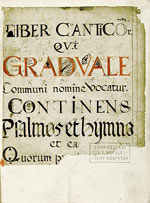 LIBER CANTICOr.
QVI
GRADVALE
Communi nomine vocatur.
CONTINENS
Psalmos et hymno
et ca
Quorum